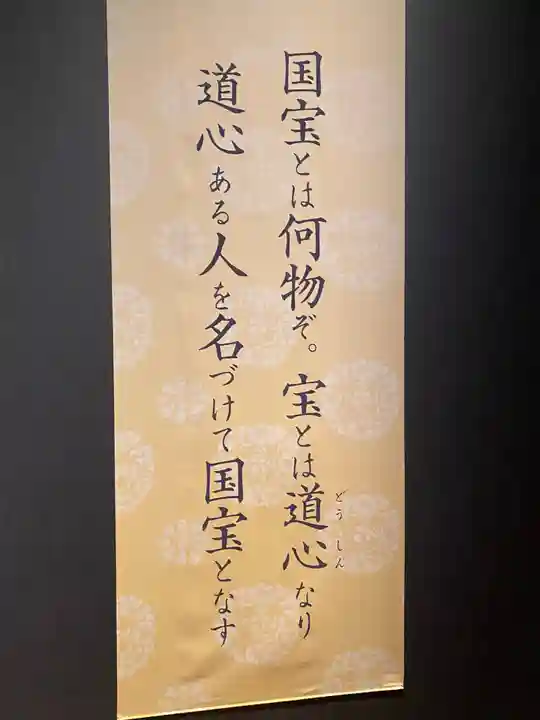 国宝とは何物ぞ。宝とは道心なり
どうしん
道心ある人を名づけて国宝となす